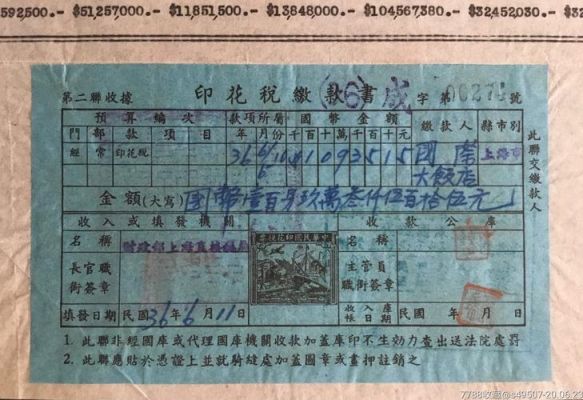 592500.- $51,257000.- $11,851,500.- $13,848,000.- $104567380.- $32,452030.- $32
第二聯收據 印花稅繳款書 (36) 成 字第 00274 號
預算編次 款項所屬 國幣金額 繳款人 縣市別
門 部 款 項 目 年 月份 千百十萬千百十元
經 常 印花稅 36 6/6 10 1093515 國際大飯店 上海市
金額(大寫) 國幣壹百另玖萬叁仟伍百拾伍元
收入或填發機關 收款公庫
名稱 財政部上海直接稅局 中華民國印花稅票 名稱
長官職銜簽章 主管員職銜簽章
填發日期 民國 36 年 6 月 11 日 收入庫帳日期 民國 年 月 日
此聯交繳款人
1. 此聯非經國庫或代理國庫機關收款加蓋庫印不生効力查出送法院處罰
2. 此聯應貼於憑證上並就騎縫處加蓋圖章或畫押註銷之
7788收藏@s49507-20.06.23